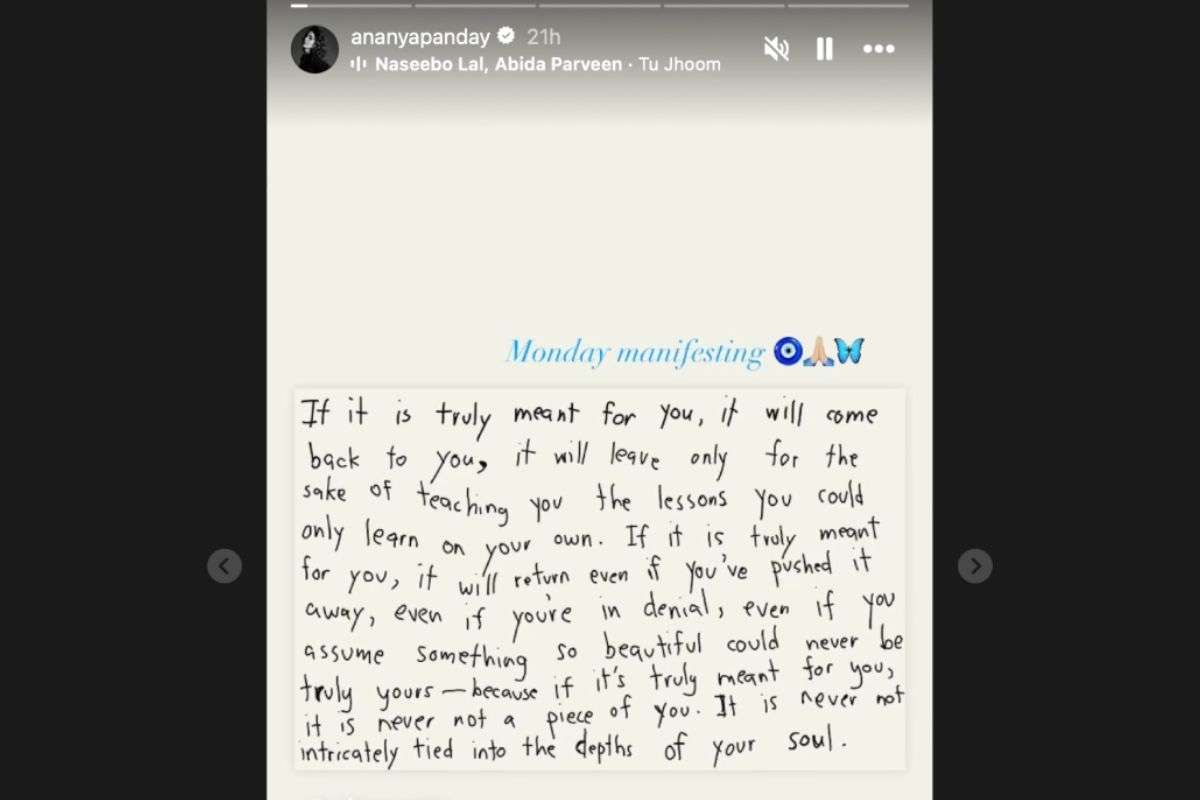 ananyapanday 21h
Naseebo Lal, Abida Parveen · Tu Jhoom
Monday manifesting 🧿🙏🏼🦋
If it is truly meant for you, it will come
back to you, it will leave only for the
sake of teaching you the lessons you could
only learn on your own. If it is truly meant
for you, it will return even if you've pushed it
away, even if you're in denial, even if you
assume something so beautiful could never be
truly yours — because if it's truly meant for you,
it is never not a piece of you. It is never not
intricately tied into the depths of your soul.